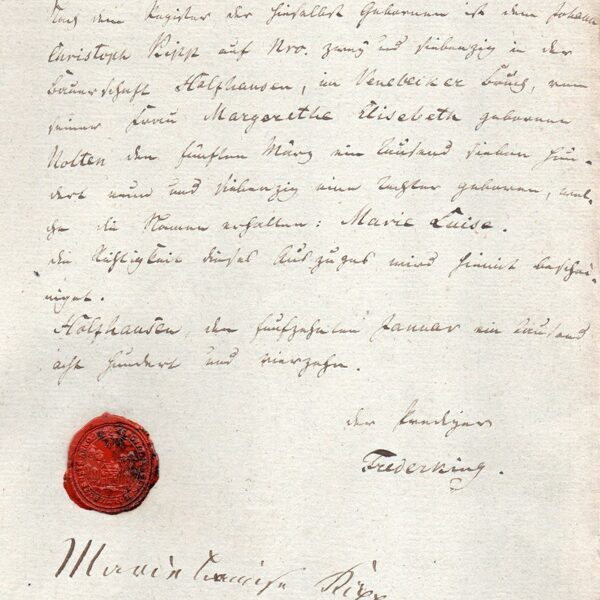 Nach dem Register der hieselbst Gebornen ist dem Johann
Christoph Kipp auf Nro. zwey und siebenzig in der
Bauerschaft Holzhausen, im Venebecker Bruch, von
seiner Frau Margarethe Elisabeth geborene
Nolten den fünften März ein tausend sieben hun-
dert neun und siebenzig eine Tochter geboren, wel-
che die Namen erhalten: Marie Luise.
die Richtigkeit dieses Auszuges wird hiemit beschei-
niget.
Holzhausen, den funfzehnten Januar ein tausend
acht hundert und vierzehn.
der Prediger
Frederking.
Marie